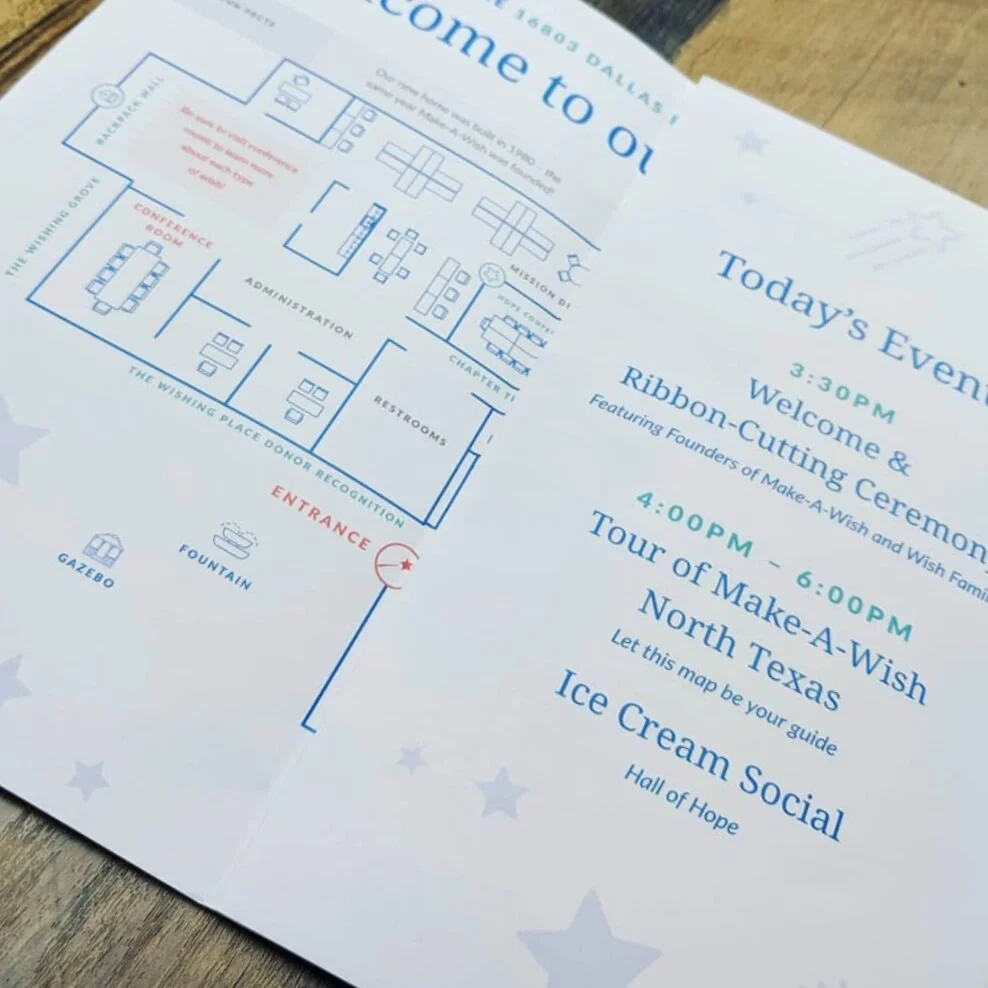 16803 DALLAS
come to ou
FUN FACTS
Our new home was built in 1980 – the
same year Make-A-Wish was founded!
BACKPACK WALL
Be sure to visit conference
rooms to learn more
about each type
of wish!
THE WISHING GROVE
CONFERENCE
ROOM
ADMINISTRATION
MISSION DI
HOPE CONFE
CHAPTER T
RESTROOMS
THE WISHING PLACE DONOR RECOGNITION
ENTRANCE
GAZEBO
FOUNTAIN
Today's Event
3:30PM
Welcome &
Ribbon-Cutting Ceremony
Featuring Founders of Make-A-Wish and Wish Famil
4:00PM – 6:00PM
Tour of Make-A-Wish
North Texas
Let this map be your guide
Ice Cream Social
Hall of Hope